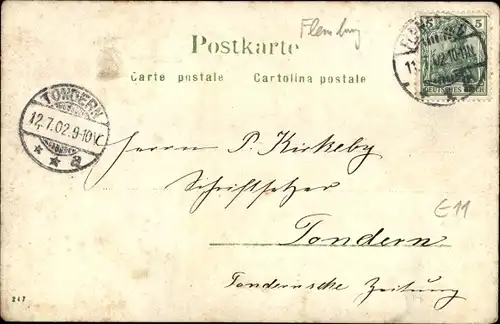 Flensburg
Postkarte
Carte postale Cartolina postale
FLENSBURG
11
02.10-11N.
5
DEUTSCHES REICH
TONDERN
12.7.02.9-10V.
* * a
Herrn P. Kirkeby
Schriftsetzer
Tondern
Tondernsche Zeitung
E11
247